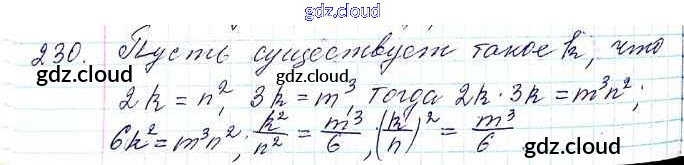 gdz.cloud
230. Пусть существует такое k, что
gdz.cloud gdz.cloud gdz.cloud
2k = n², 3k = m³, тогда 2k · 3k = m³n²;
6k² = m³n²; k²/n² = m³/6; (k/n)² = m³/6
gdz.cloud gdz.cloud gdz.cloud